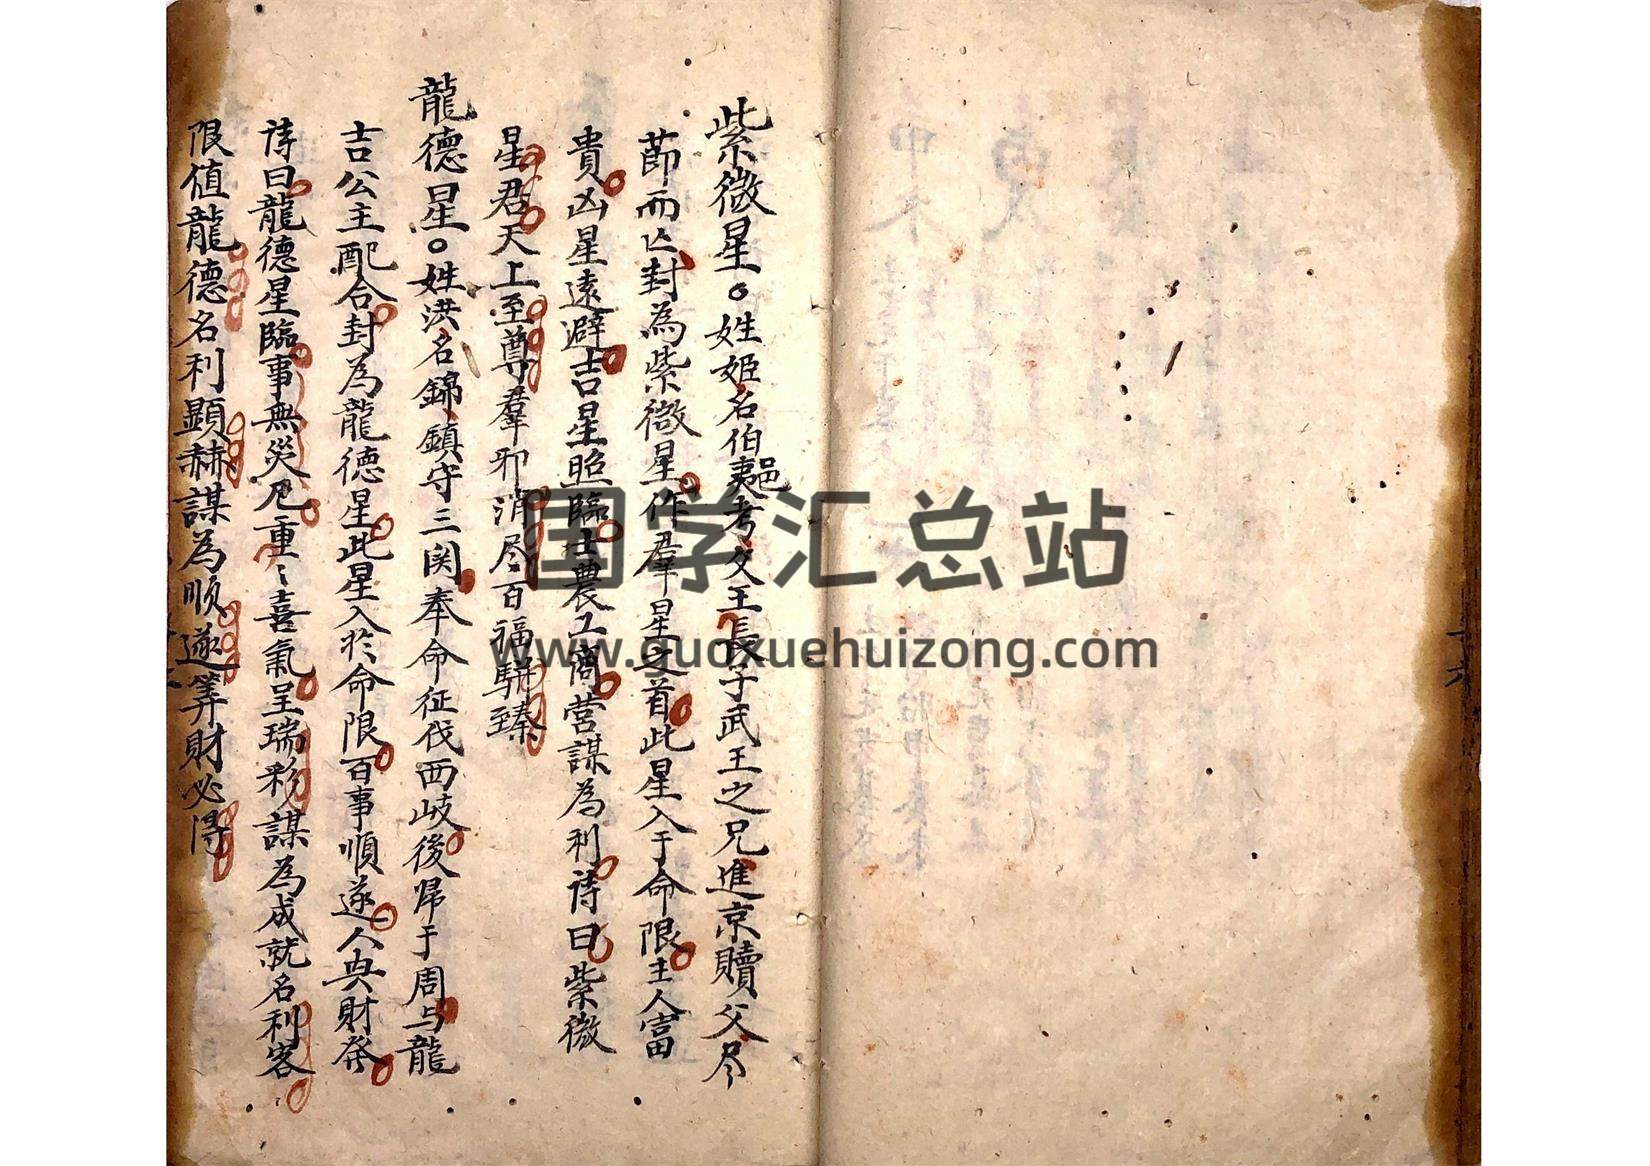 紫微星。姓姬名伯夷邑考父王長子武王之兄進京贖父尽
節而亡封為紫微星作羣星之首此星入于命限主人富
貴凶星遠避吉星照臨士農工商營謀為利诗曰紫微
星君天上至尊羣邪消尽百福駢臻
龍德星。姓洪名錦鎮守三関奉命征伐西岐後帰于周与龍
吉公主配合封為龍德星此星入於命限百事順遂人央財發
诗曰龍德星臨事無災厄重〻喜氣呈瑞彩謀為成就名利客
限值龍德名利顯赫謀為順遂筭財必得
国学汇总站
www.guoxuehuizong.com